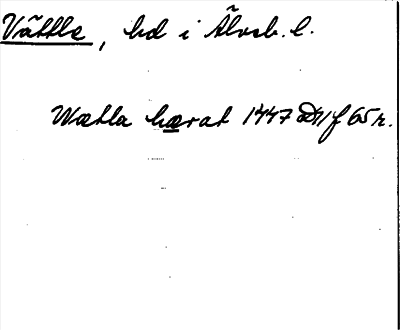 Vättle, hd i Älvsb. l.
Wætla hærat 1447 D11 f 65 r.